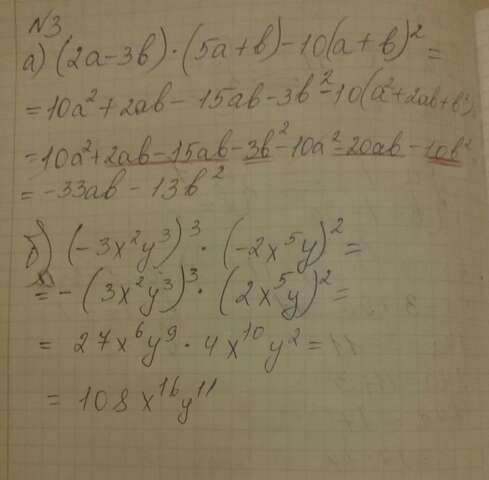 №3
а) (2a-3b)·(5a+b)-10(a+b)²=
=10a²+2ab-15ab-3b²-10(a²+2ab+b²)
=10a²+2ab-15ab-3b²-10a²-20ab-10b²
=-33ab-13b²
б) (-3x²y³)³·(-2x⁵y)²=
=-(3x²y³)³·(2x⁵y)²=
=27x⁶y⁹·4x¹⁰y²=
=108x¹⁶y¹¹